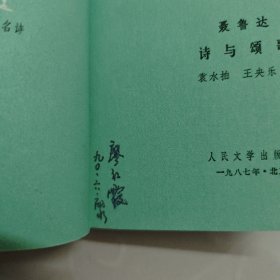 名诗
聂鲁达
诗与颂歌
袁水拍 王央乐
人民文学出版
一九八七年·北京
廖红霞
九〇.六.